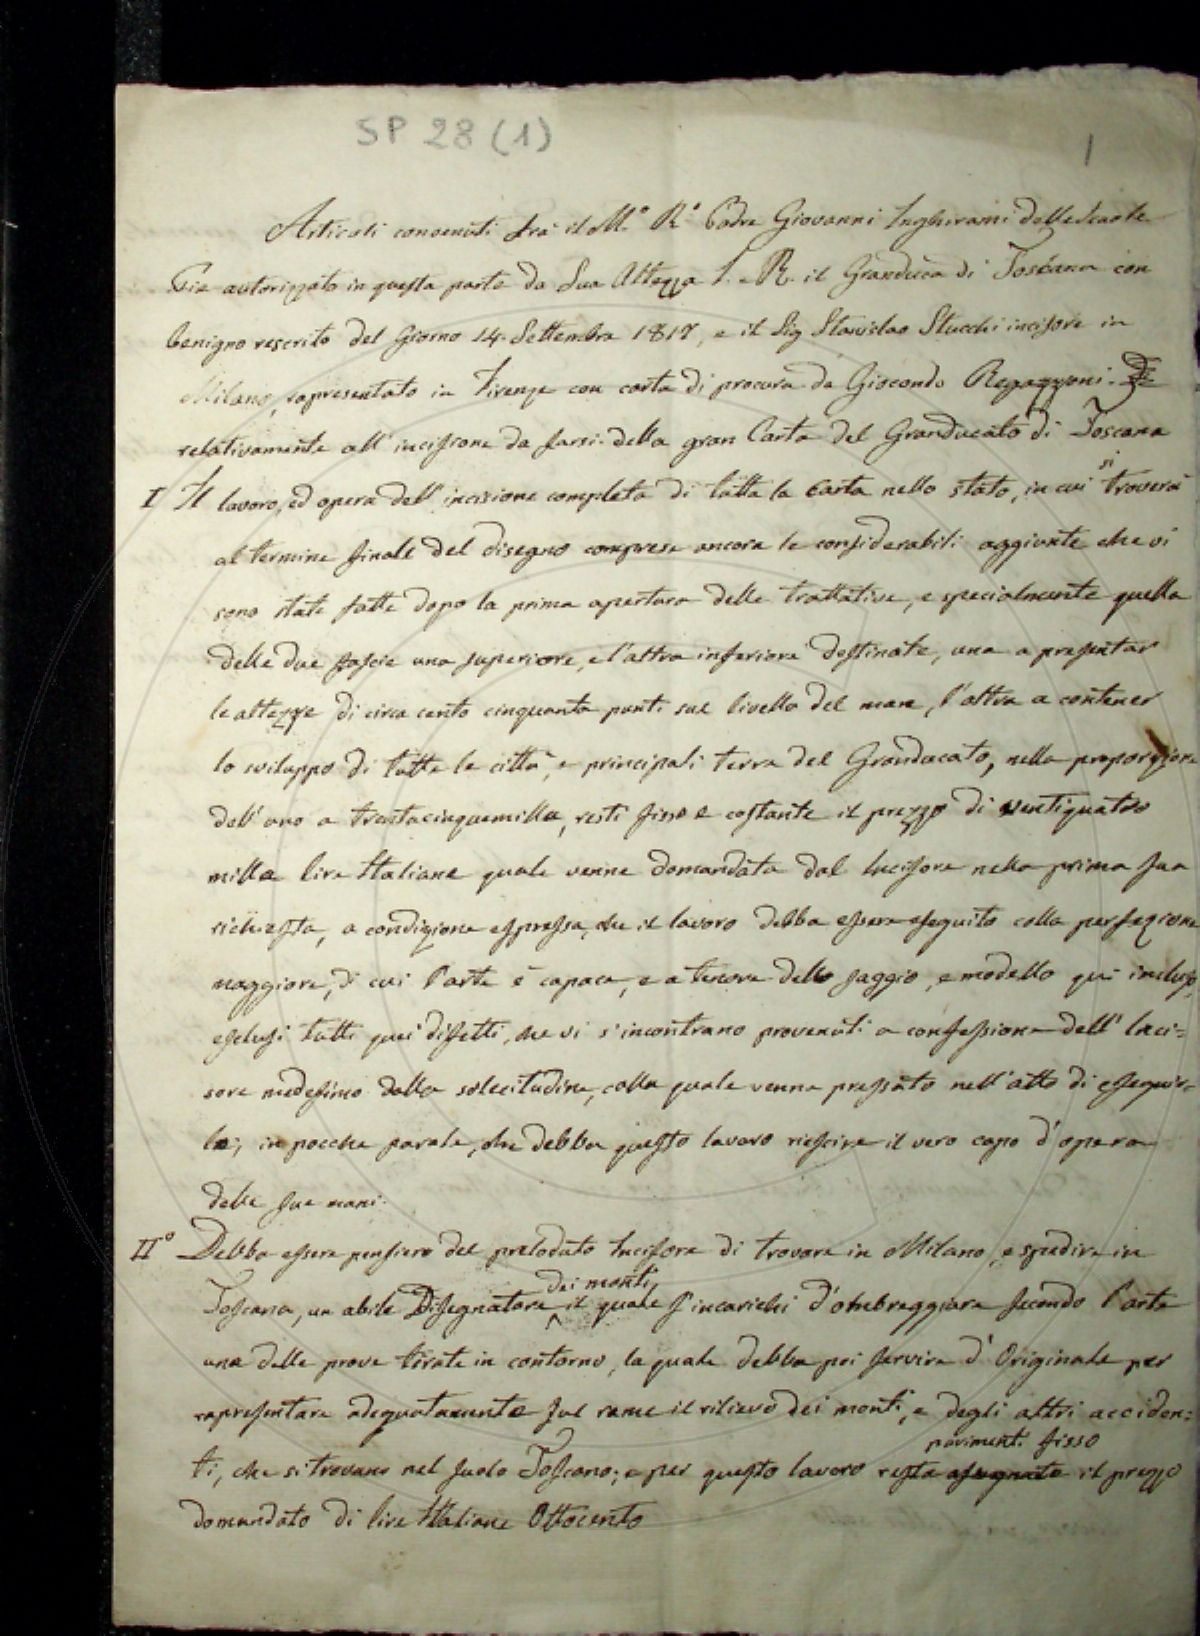 SP 28 (1)
1
Articoli convenuti fra il M.° R.° Padre Giovanni Inghirami delle Scuole
Pie autorizzato in questa parte da Sua Altezza I. e R. il Granduca di Toscana con
benigno rescrito del Giorno 14. Settembre e il Sig Stanislao Stucchi incisore in
Milano, rapresentato in Firenze con carta di procura da Giocondo
relativamente all' incisione da farsi della gran Carta del Granducato di Toscana
I Il lavoro, ed opera dell' incisione completa di tutta la Carta nello stato, in cui si troverà
al termine finale del disegno comprese ancora le considerabili aggiunte che vi
sono state fatte dopo la prima apertura delle trattative, e specialmente quella
delle due fascie una superiore, e l'altra inferiore destinate, una a presentar
le altezze di circa cento cinquanta punti sul livello del mare, l'altra a contener
lo sviluppo di tutte le città, e principali terre del Granducato, nella proporzione
dell' uno a trentacinquemilla, resti fisso e costante il prezzo di ventiquatro
milla lire Italiane quale venne domandata dal Incisore nella prima sua
richiesta, a condizione espressa, che il lavoro debba essere eseguito colla perfezione
maggiore, di cui l'arte è capace, e a tenore dello saggio, e modello qui incluso,
esclusi tutti quei difetti, che vi s'incontrano provenuti a confessione dell' Inci=
sore medesimo dalla solecitudine, colla quale venne pressato nell'atto di eseguir=
lo; in pocche parole, che debba questo lavoro riescire il vero capo d'opera
delle sue mani.
II° Debba essere pensiero del prelodato Incisore di trovare in Milano, e spedire in
Toscana, un abile Disegnatore dei monti, il quale s'incarichi d'ombreggiare secondo l'arte
una delle prove tirate in contorno, la quale debba poi servire d' Originale per
rapresentare adequatamente sul rame il rilievo dei monti, e degli altri acciden=
ti, che si trovano nel suolo Toscano; e per questo lavoro resta pariment. fisso il prezzo
domandato di lire Italiane Ottocento